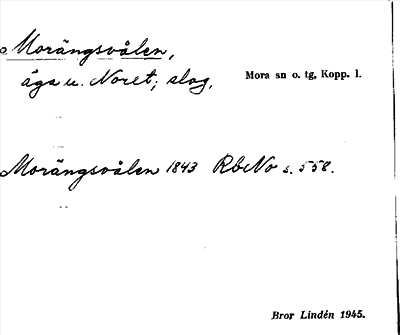 Morängsvålen,
äga u. Noret; slog. Mora sn o. tg, Kopp. l.
Morängsvålen 1843 RbNo s. 558.
Bror Lindén 1945.